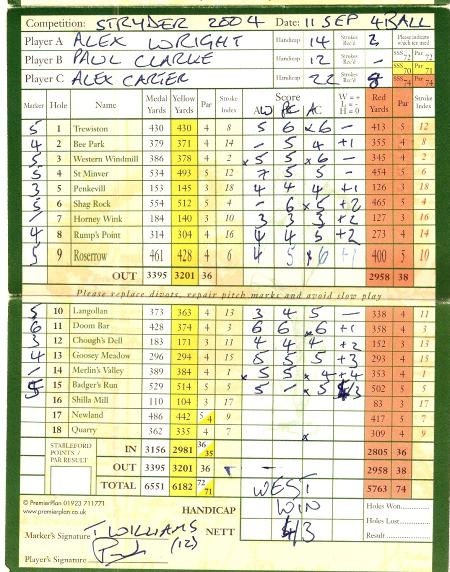 Competition: STRYDER 2004 Date: 11 SEP 4BALL
Player A ALEX WRIGHT Handicap 14 Strokes Rec'd 2 Please indicate which tee used
Player B PAUL CLARKE Handicap 12 Strokes Rec'd — SSS 72 Par 72
SSS 70 Par 71
Player C ALEX CARTER Handicap 22 Strokes Rec'd 8 SSS 74 Par 74
Marker Hole Name Medal Yards Yellow Yards Par Stroke Index Score W = + L = - H = 0 Red Yards Par Stroke Index
AW PC AC
5 1 Trewiston 430 430 4 8 5 6 x6 — 413 5 12
4 2 Bee Park 379 371 4 14 — 5 4 +1 355 4 8
5 3 Western Windmill 386 378 4 2 x5 5 x6 — 345 4 2
5 4 St Minver 534 493 5 12 7 5 5 — 454 5 6
3 5 Penkevill 153 145 3 18 4 4 4 +1 126 3 18
5 6 Shag Rock 554 512 5 4 — 6 x5 +2 465 5 4
7 Horney Wink 184 140 3 10 3 3 3 +2 127 3 16
4 8 Rump's Point 314 304 4 16 4 4 5 +2 273 4 14
5 9 Roserrow 461 428 4 6 4 5 x6 +1 400 5 10
OUT 3395 3201 36 2958 38
Please replace divots, repair pitch marks and avoid slow play
5 10 Langollan 373 363 4 13 3 4 5 — 338 4 11
6 11 Doom Bar 428 374 4 3 6 6 x6 +1 358 4 3
3 12 Chough's Dell 183 171 3 11 4 4 4 +2 152 3 13
4 13 Goosey Meadow 296 294 4 15 5 5 5 +3 293 4 15
— 14 Merlin's Valley 389 384 4 1 x5 5 x4 +4 353 4 1
5 15 Badger's Run 529 514 5 5 5 — x5 4/3 502 5 5
16 Shilla Mill 110 104 3 17 83 3 17
17 Newland 486 442 5 4 9 417 5 7
18 Quarry 362 335 4 7 x 309 4 9
STABLEFORD POINTS / PAR RESULT
IN 3156 2981 36 35 2805 36
OUT 3395 3201 36 2958 38
TOTAL 6551 6182 72 71 WEST 5763 74
© PremierPlan 01923 711771
www.premierplan.co.uk
HANDICAP WIN Holes Won
NETT 4/3 Holes Lost
Result
Marker's Signature T WILLIAMS (12)
Player's Signature